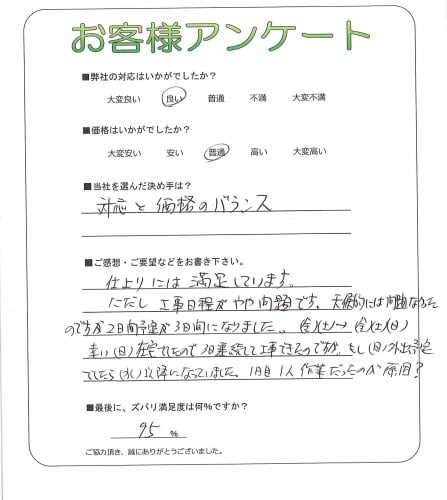 お客様アンケート
■弊社の対応はいかがでしたか?
大変良い 良い 普通 不満 大変不満
■価格はいかがでしたか?
大変安い 安い 普通 高い 大変高い
■当社を選んだ決め手は?
対応と価格のバランス
■ご感想・ご要望などをお書き下さい。
仕上りには満足しています。
ただし工事日程がやや問題です。天候的には問題なかった
のですが2日間予定が3日間になりました。(金)(土)→(金)(土)(日)
幸い(日)在宅でしたので3日連続して工事できたのですが、もし(日)外出予定
でしたら(水)以降になっていました。1日目1人作業だったのが原因?
■最後に、ズバリ満足度は何%ですか?
95 %
ご協力頂き、誠にありがとうございました。